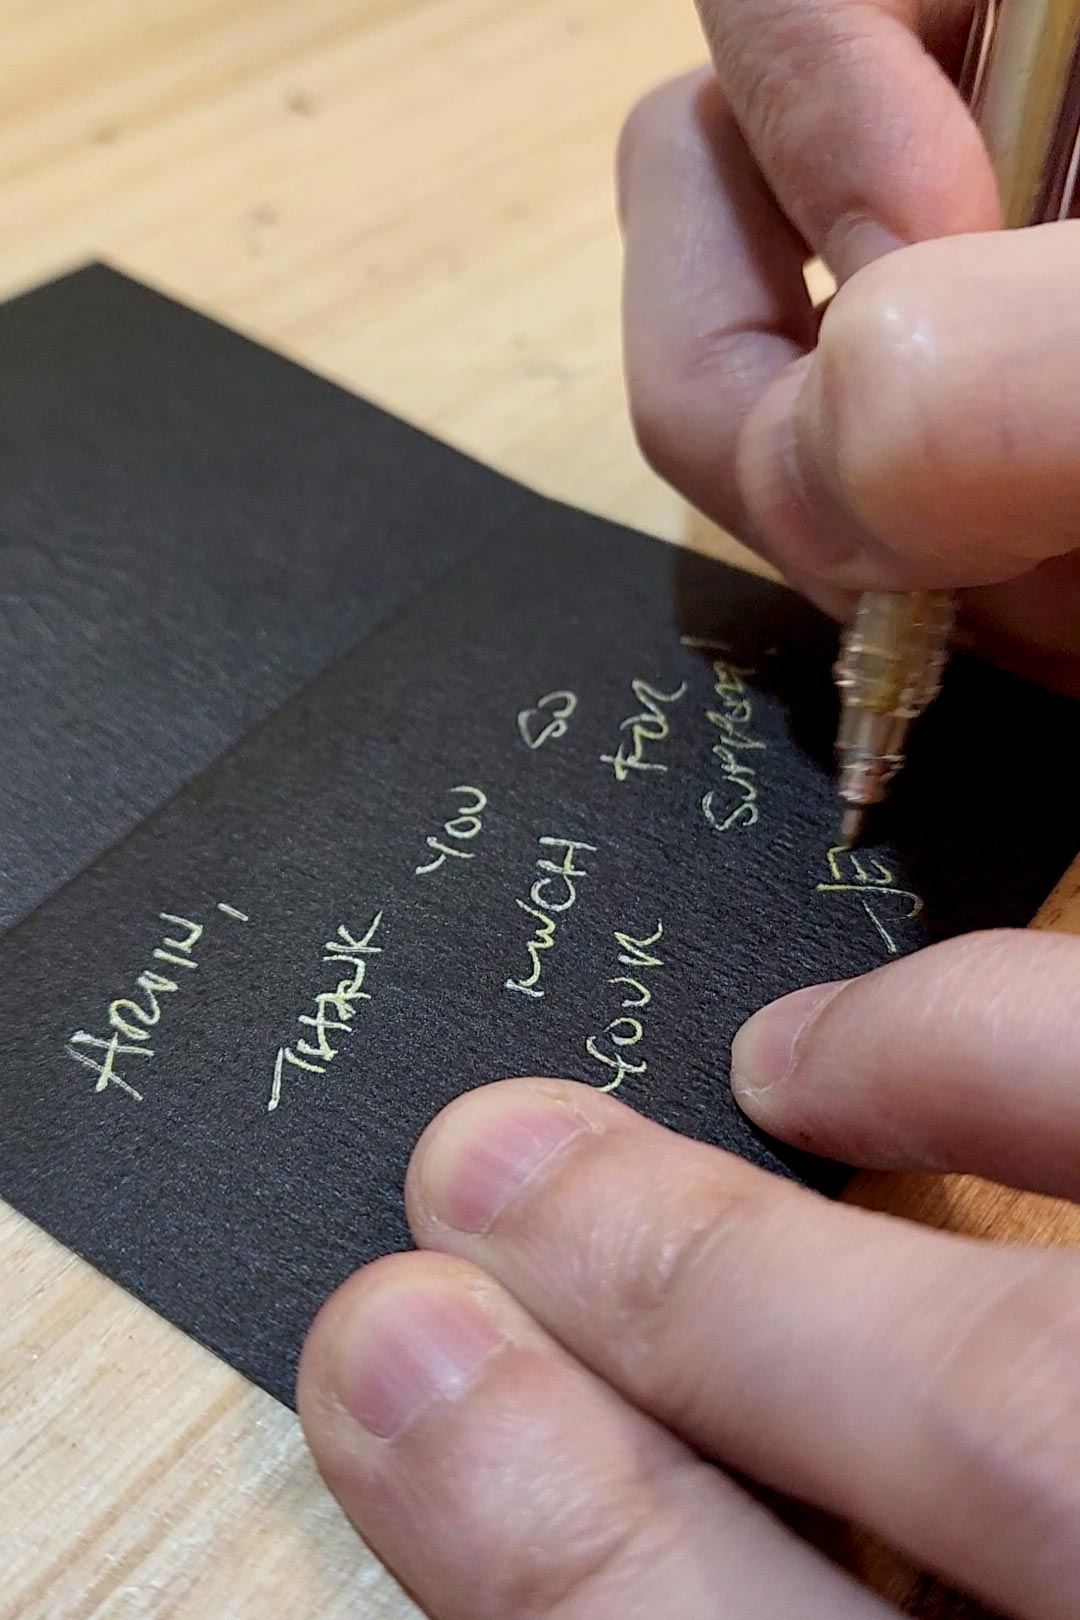 ARVIN,
THANK YOU SO
MUCH FOR
YOUR SUPPORT!
-JE